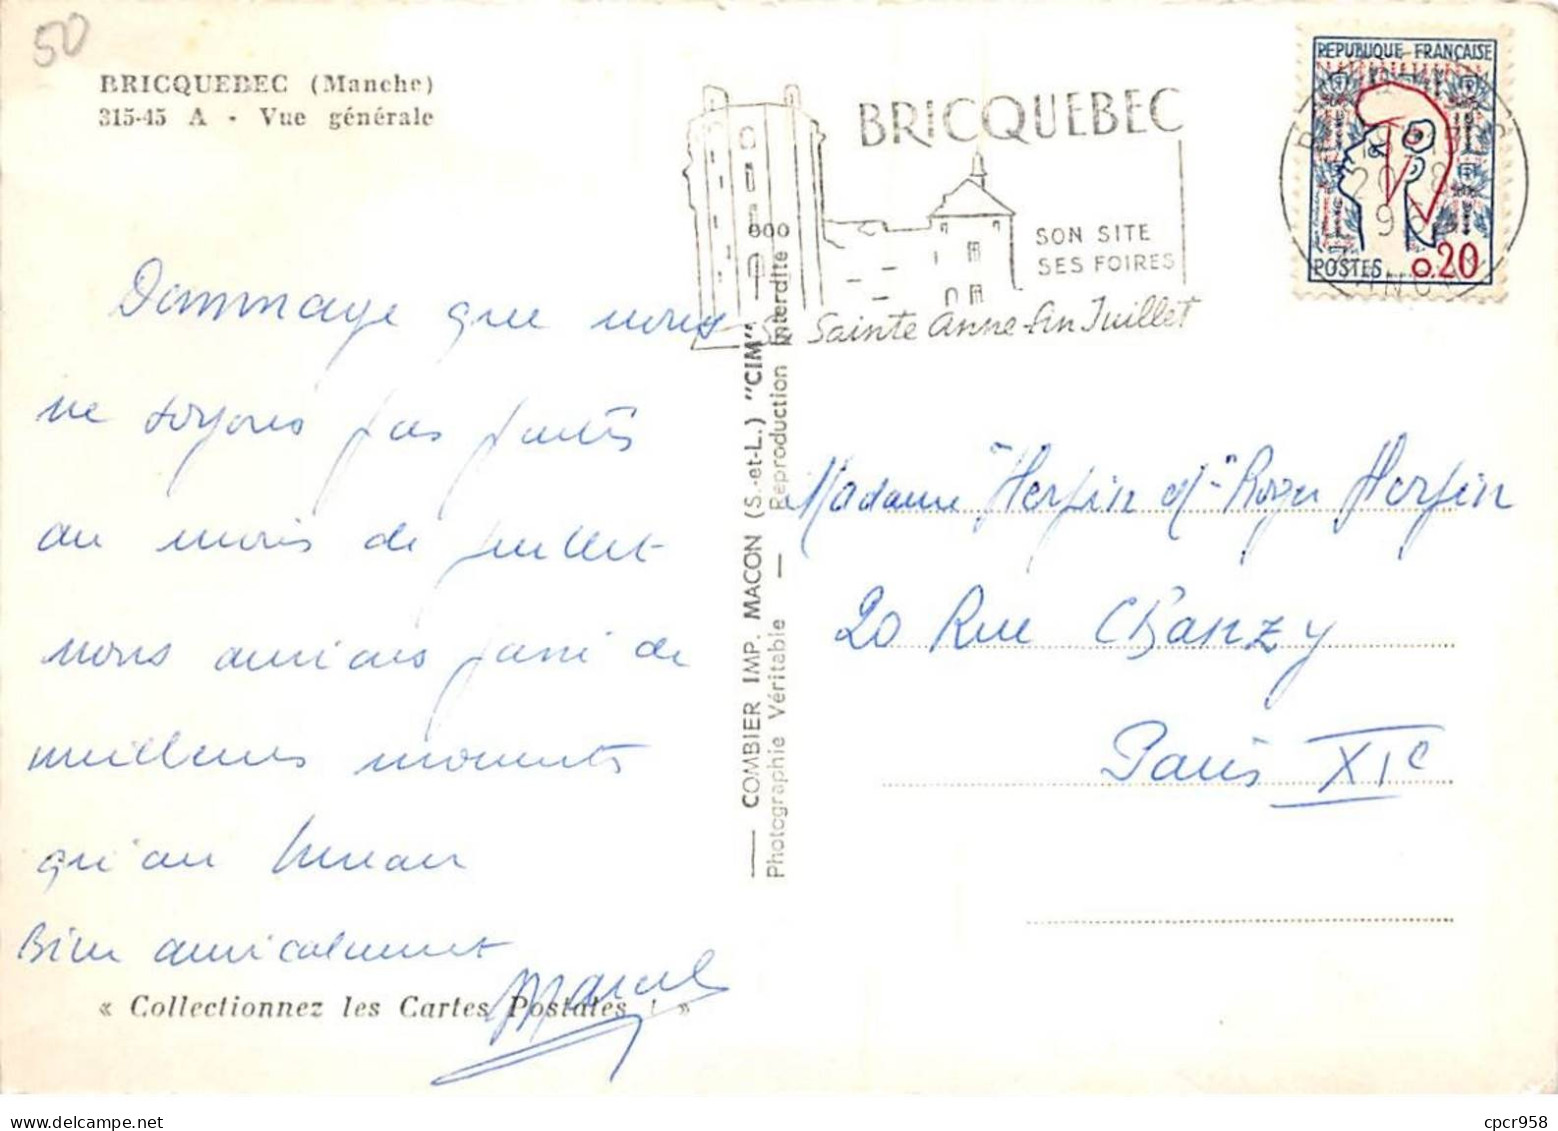 50
BRICQUEBEC (Manche)
315-45 A - Vue générale
BRICQUEBEC
SON SITE
SES FOIRES
Sainte Anne-fin Juillet
REPUBLIQUE FRANÇAISE
POSTES 0.20
Dommage que nous
ne soyons pas partis
au mois de juillet
nous aurions joui de
meilleurs moments
qu'au
Bien amicalement
Marcel
« Collectionnez les Cartes Postales ! »
COMBIER IMP. MACON (S.-et-L.) "CIM"
Photographie Véritable — Reproduction Interdite
Madame Herpin et Mr Roger Herpin
20 Rue Chanzy
Paris XIe
cpcr958